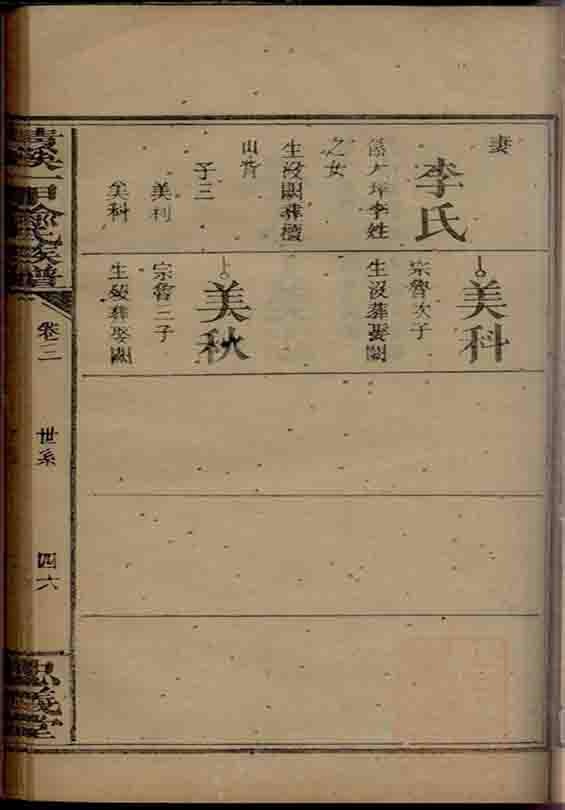 妻
李氏
坪李姓
之女
生没闕葬檀
山背
子三
美利
美科
美科
宗魯次子
生没葬娶闕
美秋
宗魯三子
生殁葬娶闕
一甲 氏族譜
卷二
世系
四六
忠義堂